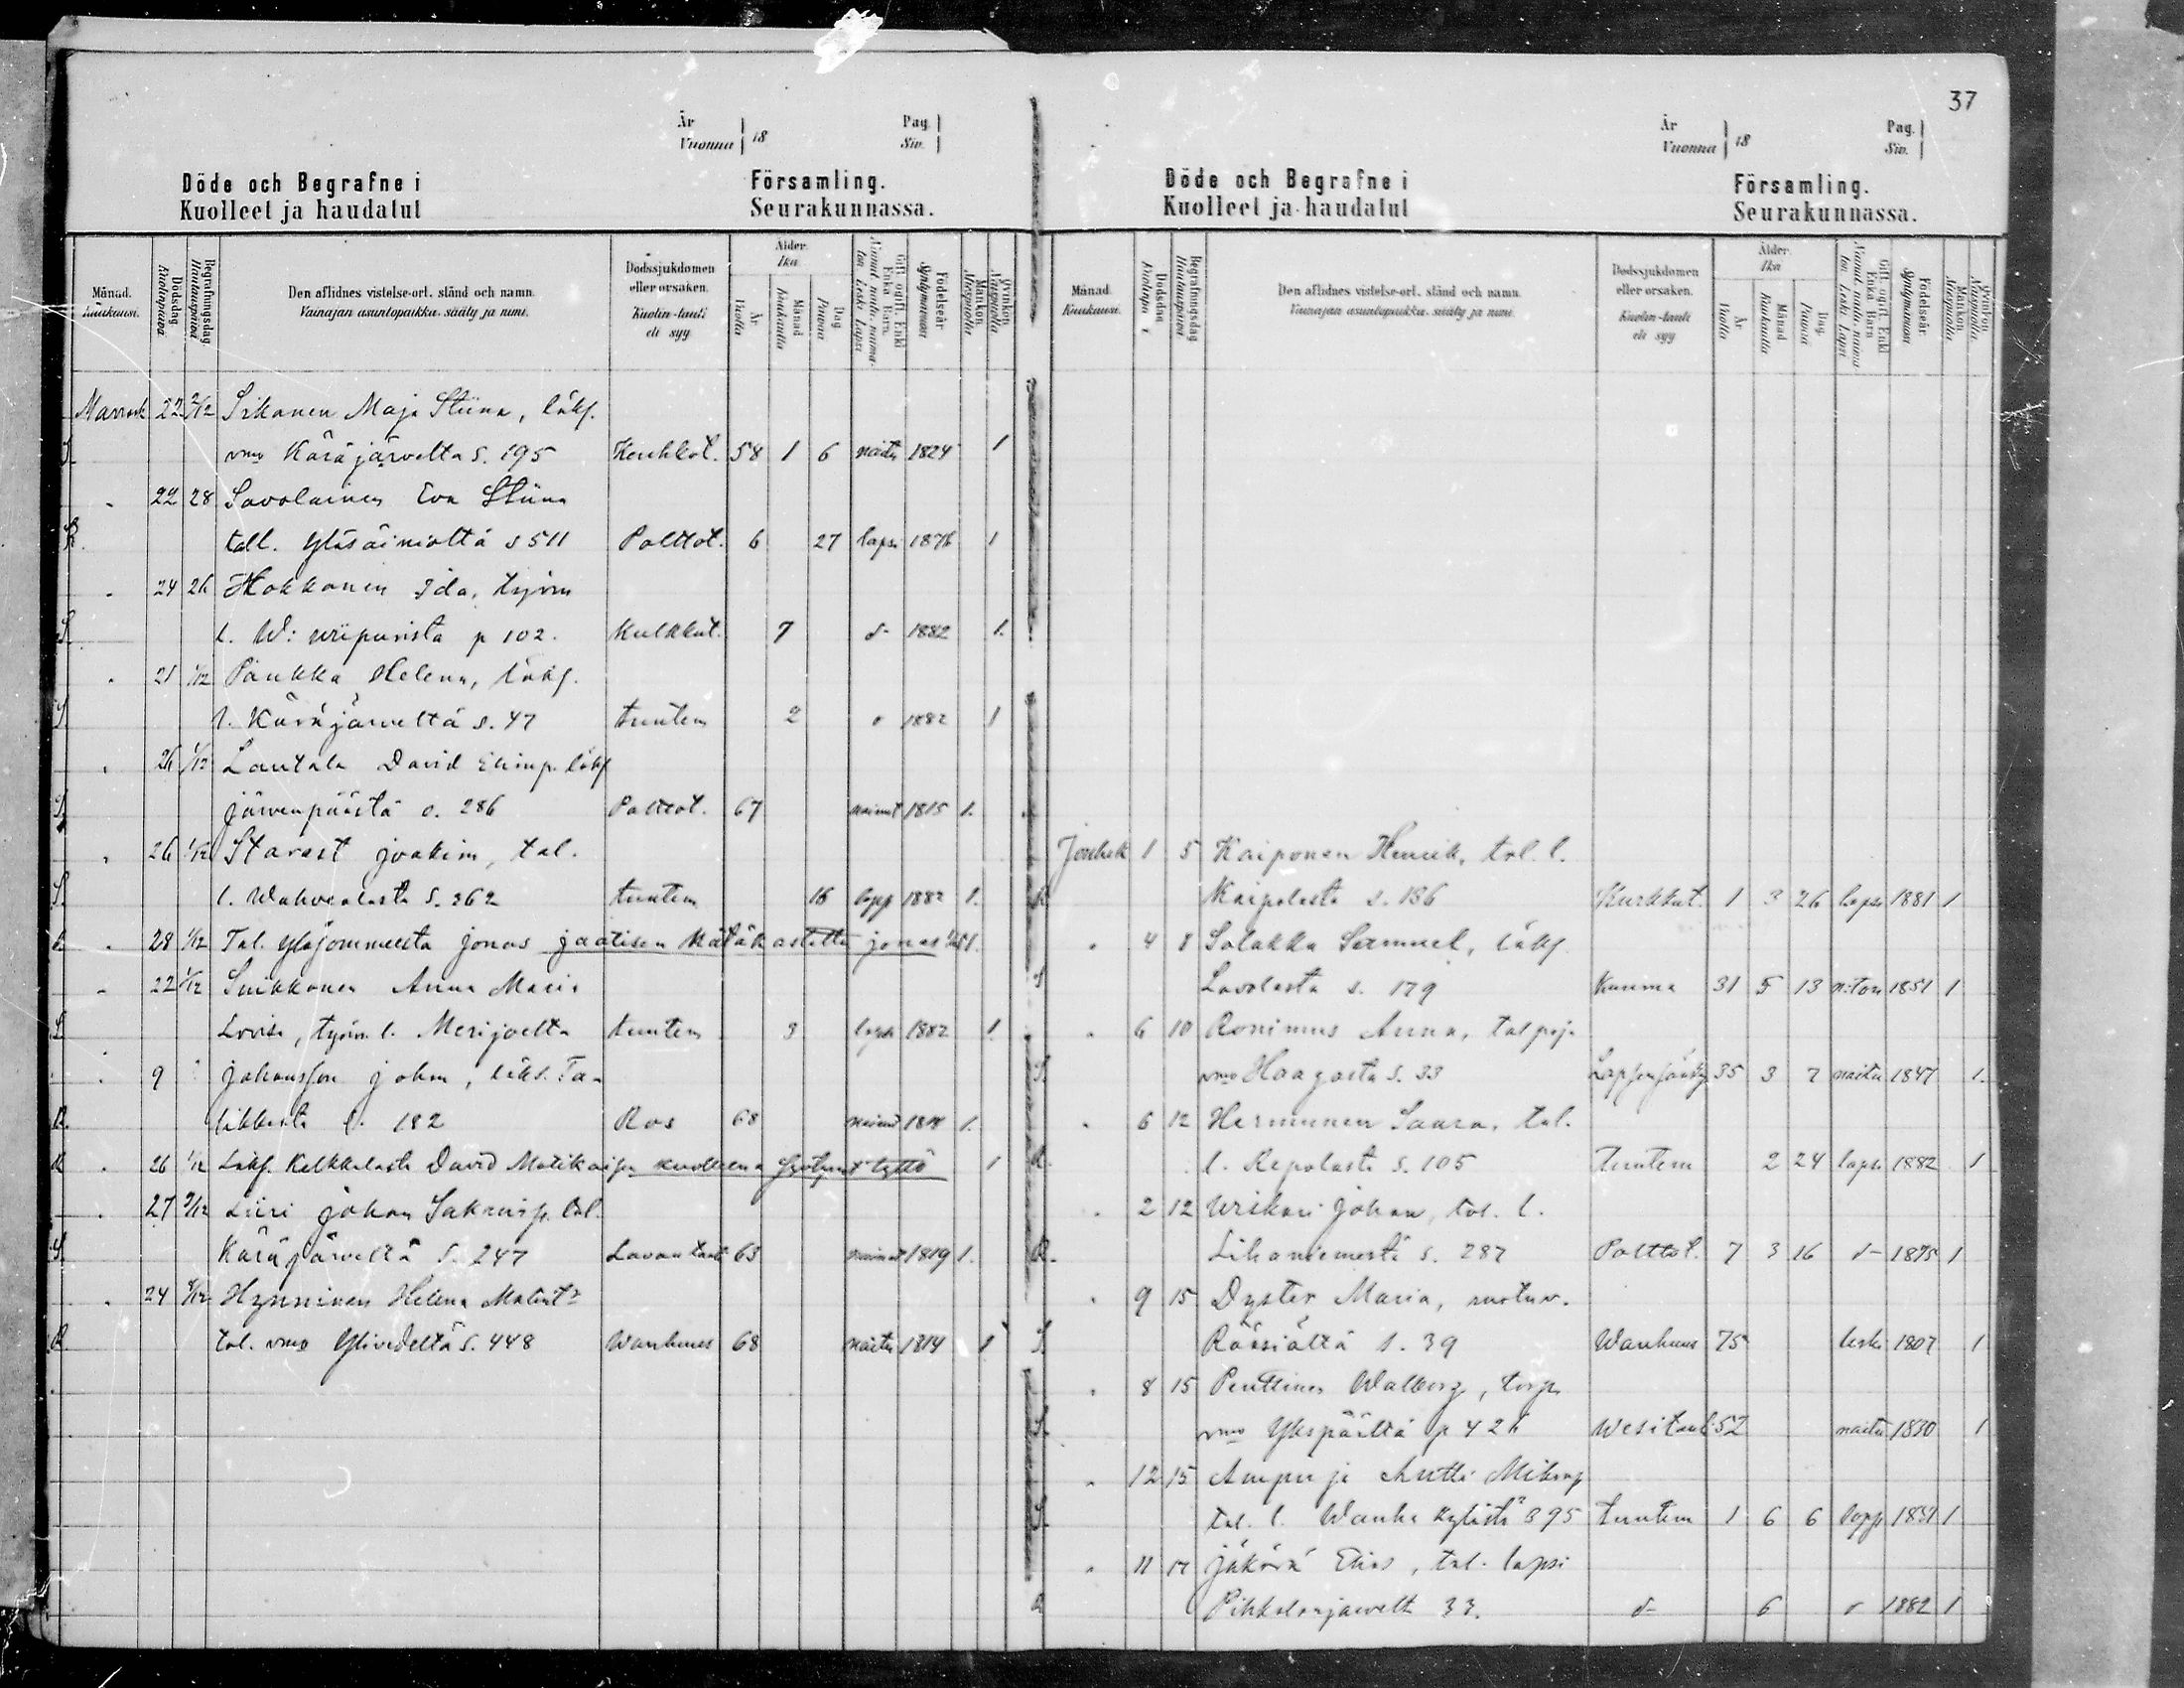 37
År
Vuonna 18
Pag.
Siv.
Döde och Begrafne i Församling.
Kuolleet ja haudatut Seurakunnassa.
Månad. Kuukausi.
Dödsdag Kuolinpäivä
Begrafningsdag. Hautauspäivä
Den aflidnes vistelse-ort, stånd och namn.
Vainajan asuntopaikka, sääty ja nimi.
Dödssjukdomen eller orsaken.
Kuolin-tauti eli syy
Ålder. Ikä
År Vuotta
Månad Kuukautta
Dag Päivää
Gift, ogift, Enkl. Enka Barn.
Födelseår Syntymävuosi
Mankön. Miespuolia
Qvinkön. Naispuolia
Marrask 22 2/12 Sikanen Maja Stiina, läks.
S vmo Käräjärveltä s. 195 Keuhkot. 58 1 6 naitu 1824 1
22 28 Savolainen Eva Stiina
R tall. Yläsäiniöltä s 511 Polttot. 6 27 lapsi 1876 1
24 26 Hokkanen Ida, työm
S l. W: wiipurista p 102. Kulkkut. 7 d- 1882 1.
21 1/12 Paukka Helena, läks.
S l. Käräjärveltä s. 47 tuntem 2 1882 1
26 1/12 Lautala David läks
S Järvenpäästä s. 286 Polttot. 67 nainut 1815 1.
26 1/12 Starast Joakim, tal.
S l. Wahvialasta S. 262 tuntem 16 laps 1882 1.
28 1/12 Tal. Yläsommeesta Jonas Jaatisen
22 1/12 Suikkanen Anna Maria
S Lovisa, työm. l. Merijoelta tuntem 3 lapsi 1882 1.
9 Johansson John, läks. Ta-
R likkesta 182 Ros 68 nainut 1.
R 26 1/12 Läks. Kelkkalasta David Matikaisen kuolleena syntynyt tyttö 1
27 Liiri Johan tal.
S Käräjärveltä S. 247 Lavantauti 63 nainut 1819 1.
24 Hynninen Helena
R tal. vmo Ylivedeltä S. 448 Wanhuus 68 naitu 1814 1
År
Vuonna 18
Pag.
Siv.
Döde och Begrafne i Församling.
Kuolleet ja haudatut Seurakunnassa.
Månad. Kuukausi.
Dödsdag
Begrafningsdag Hautauspäivä
Den aflidnes vistelse-ort, stånd och namn.
Vainajan asuntopaikka, sääty ja nimi.
Dödssjukdomen eller orsaken.
Kuolin-tauti eli syy
Ålder. Ikä
År Vuotta
Månad Kuukautta
Dag Päivää
Gift, ogift, Enkl. Enka Barn
Födelseår Syntymävuosi
Mankön. Miespuolia
Qvinkön. Naispuolia
Jouluk 1 5 Kaiponen Henrik, tal. l.
R Kaipolasta s. 186 Kurkkut. 1 3 26 lapsi 1881 1
4 8 Salakka Samuel, läks.
S Lavolasta s. 179 Kuuma 31 5 13 n:ton 1851 1
6 10 Ronimus Anna, tal poj.
S. vmo Haagasta S. 33 35 3 7 naitu 1847 1.
6 12 Hermunen Saara, tal.
R. l. Repolasta S. 105 Tuntem 2 24 lapsi 1882 1
2 12 Urikari Johan, tal. l.
R. Lihaniemestä s. 287 Polttot. 7 3 16 d- 1875 1
9 15 Dyster Maria, ruotuv.
S. Rääsiältä s. 39 Wanhuus 75 leski 1807 1
8 15 Penttinen Walborg, torp.
S. vmo Ykspäältä p 426 Wesitauti 52 naitu 1830 1
12 15 Ampuja Antti
S. tal. l. Wanha Kylästä 395 tuntem 1 6 6 laps 1
11 17 Jäkärä Elias, tal. lapsi
R 33. d- 6 1882 1